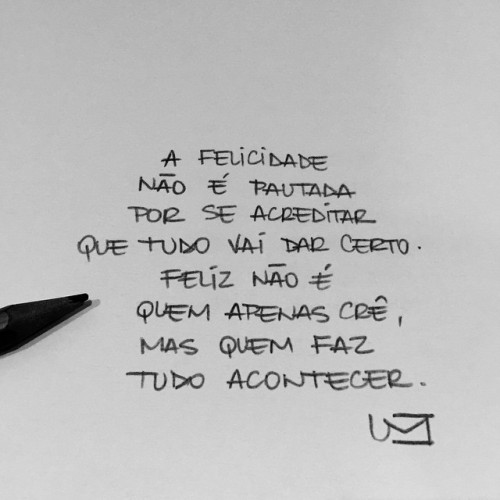 A FELICIDADE
NÃO É PAUTADA
POR SE ACREDITAR
QUE TUDO VAI DAR CERTO.
FELIZ NÃO É
QUEM APENAS CRÊ,
MAS QUEM FAZ
TUDO ACONTECER.